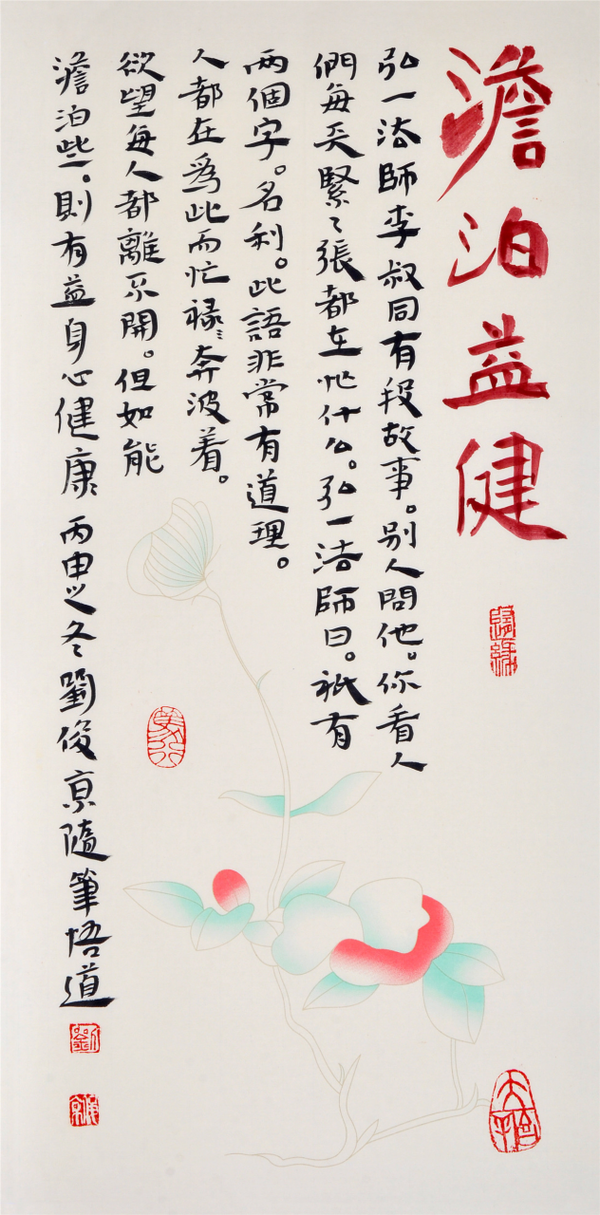 澹泊益健
弘一法師李叔同有段故事。别人問他。你看人
們每天緊〻張都在忙什么。弘一法師曰。衹有
兩個字。名利。此語非常有道理。
人都在爲此而忙祿〻奔波着。
欲望每人都離不開。但如能
澹泊些。則有益身心健康 丙申之冬 劉俊亰隨筆悟道
劉